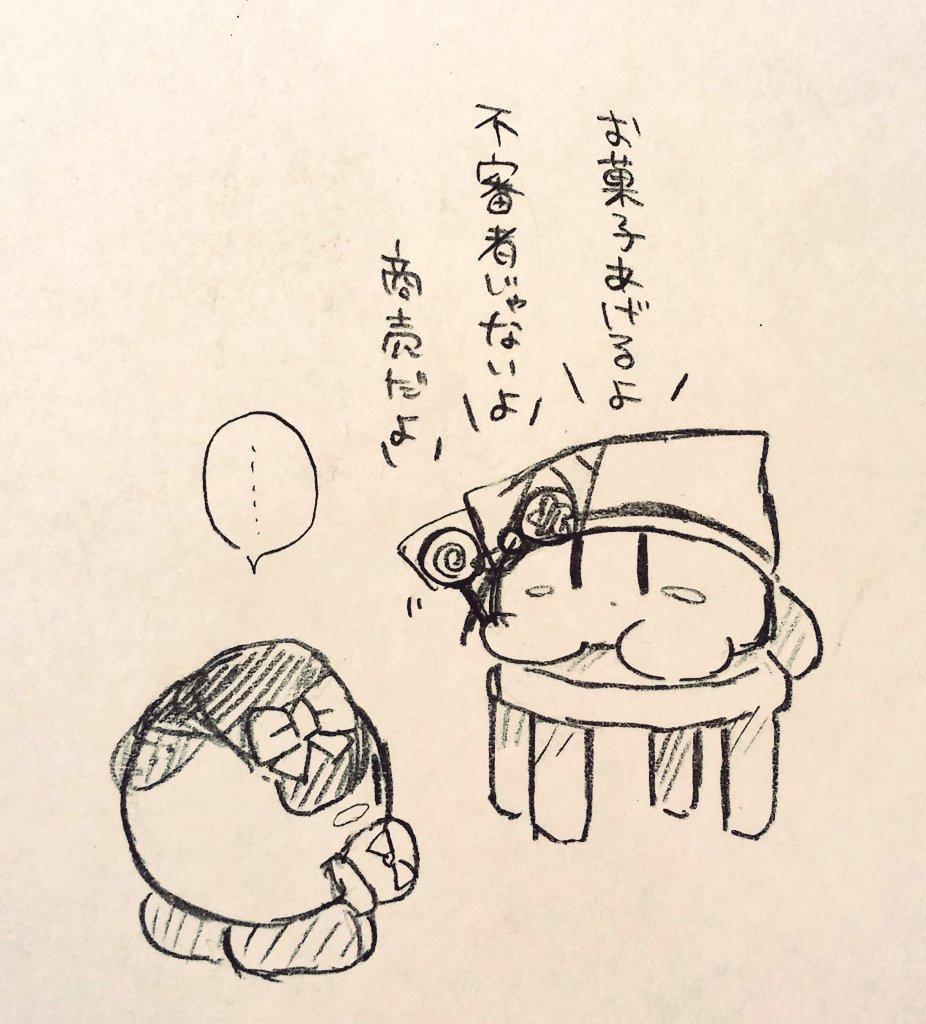 お菓子あげるよ
不審者じゃないよ
商売だよ
……